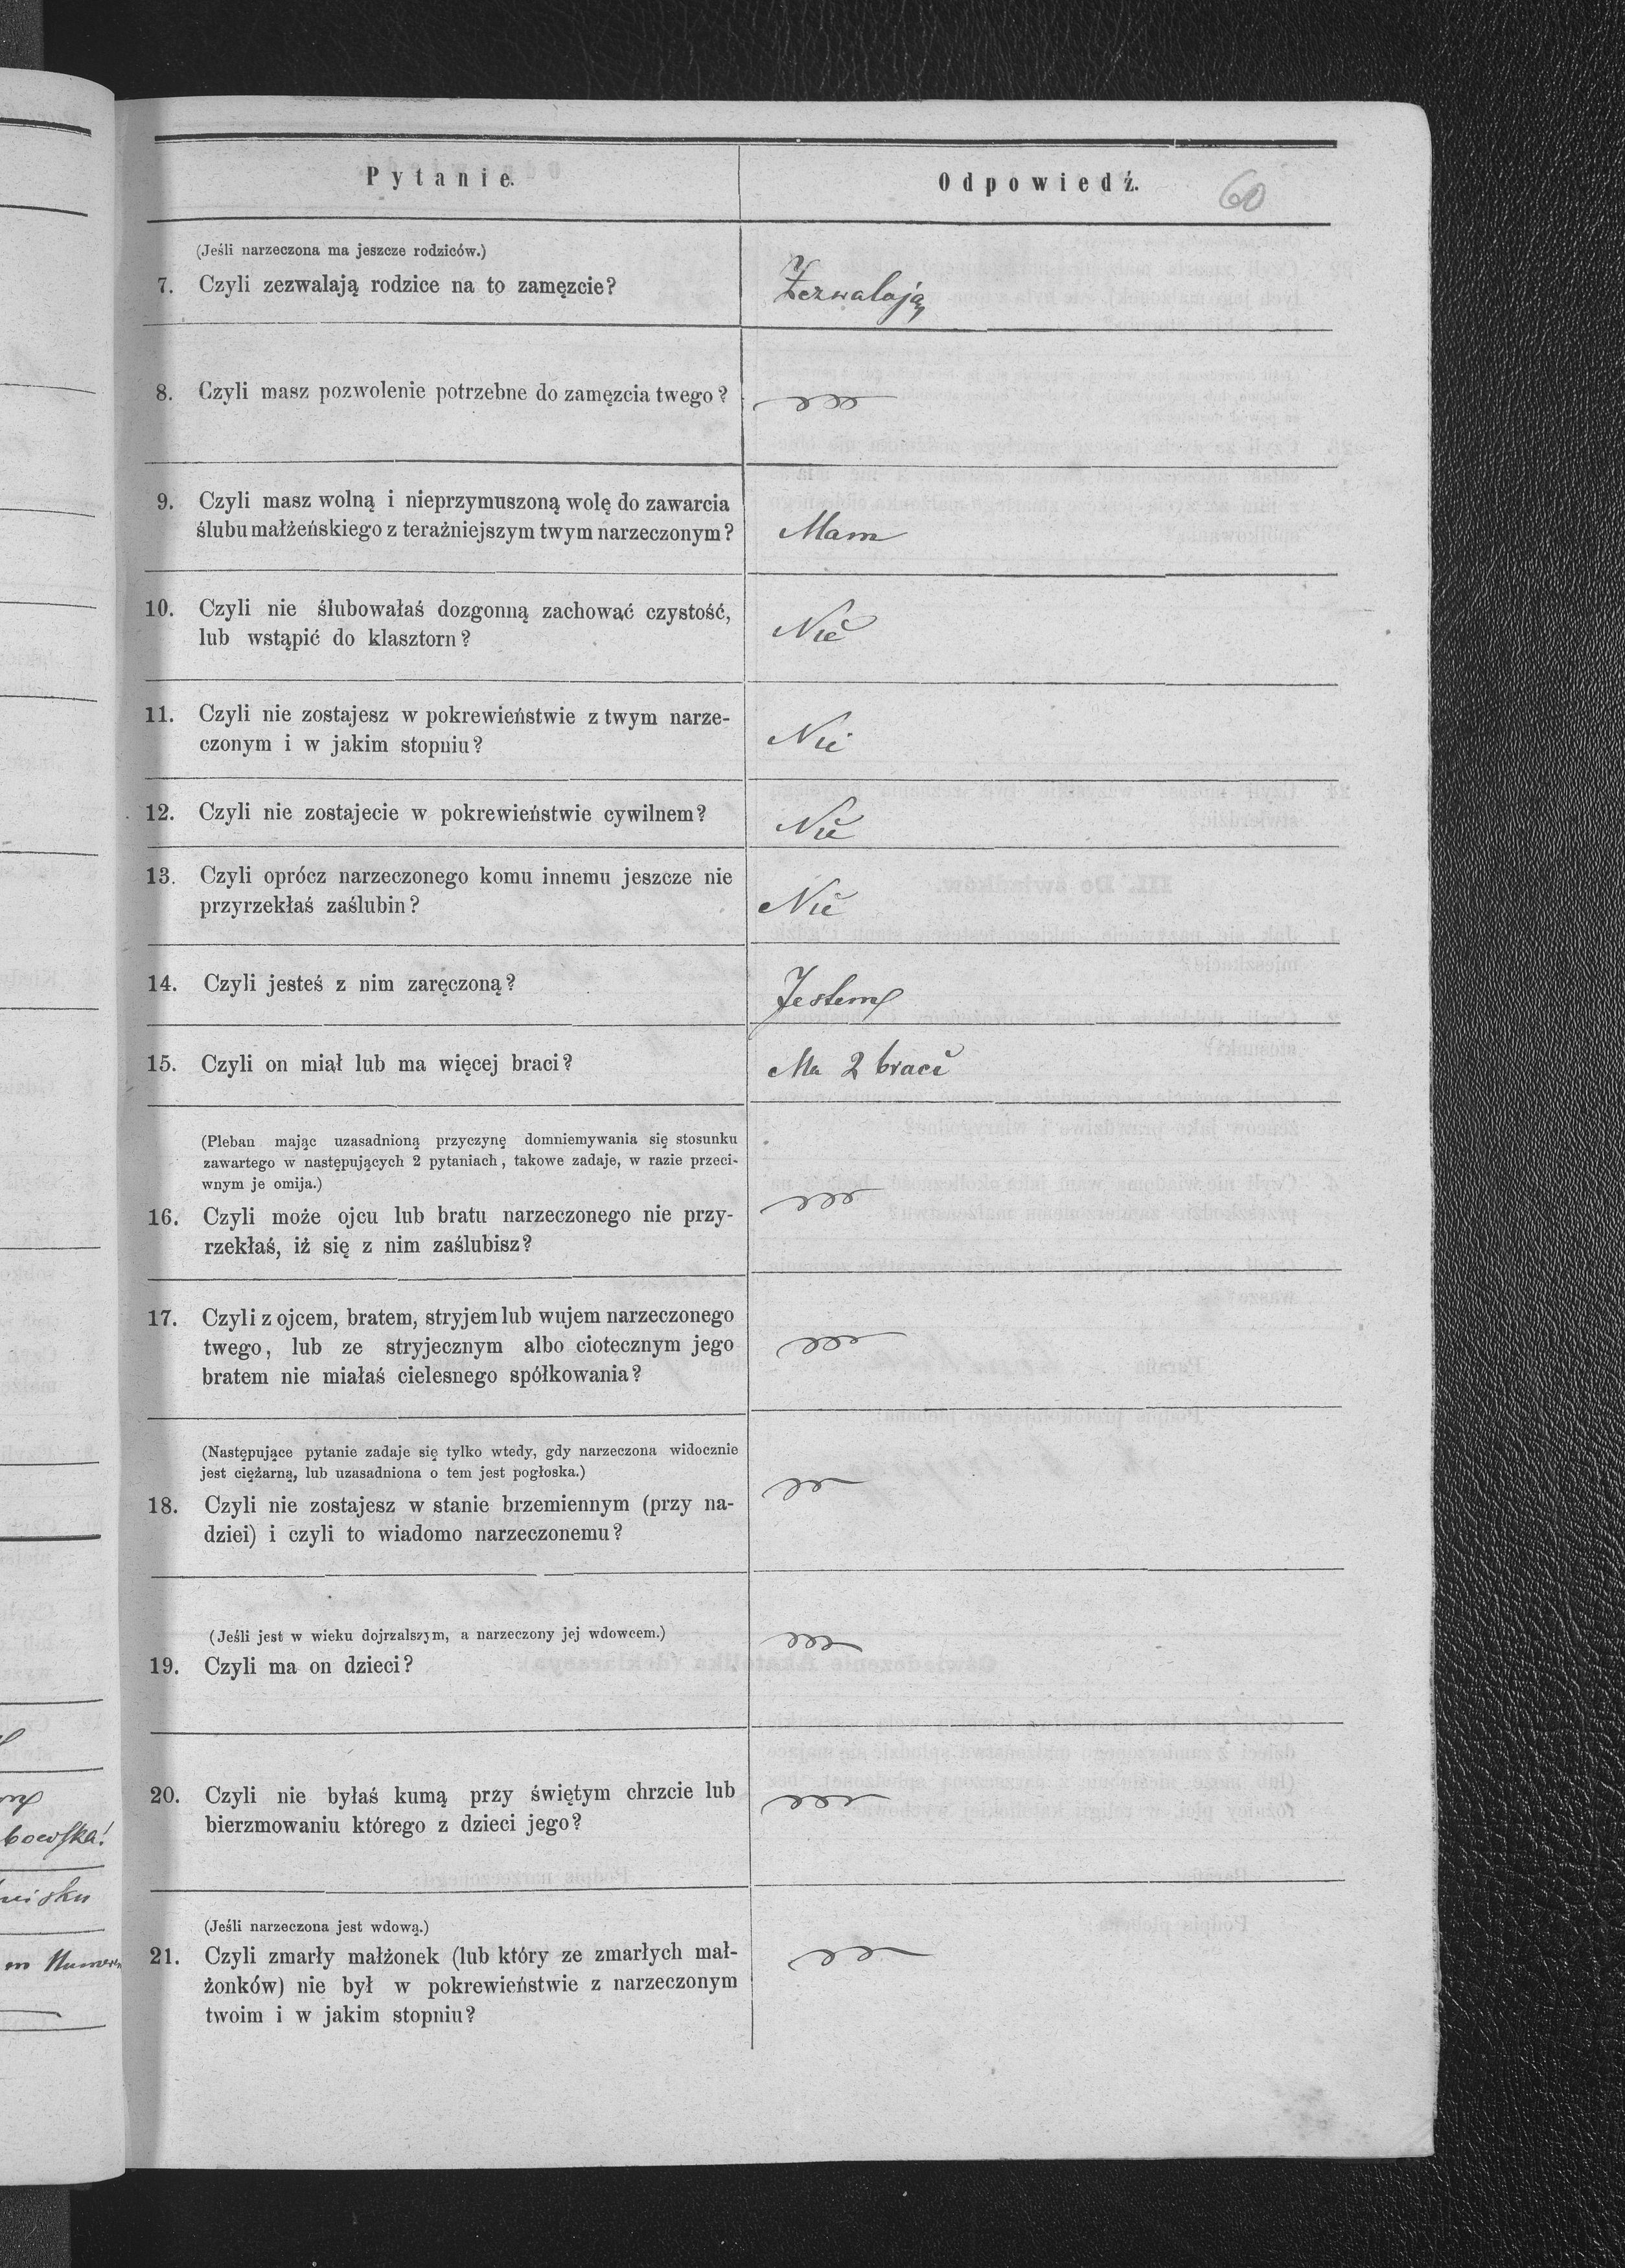 Pytanie.
Odpowiedź.
60
(Jeśli narzeczona ma jeszcze rodziców.)
7. Czyli zezwalają rodzice na to zamęzcie?
Zezwalają
8. Czyli masz pozwolenie potrzebne do zamęzcia twego?
9. Czyli masz wolną i nieprzymuszoną wolę do zawarcia
ślubu małżeńskiego z teraźniejszym twym narzeczonym?
Mam
10. Czyli nie ślubowałaś dozgonną zachować czystość,
lub wstąpić do klasztorn?
Nie
11. Czyli nie zostajesz w pokrewieństwie z twym narze-
czonym i w jakim stopniu?
Nie
12. Czyli nie zostajecie w pokrewieństwie cywilnem?
Nie
13. Czyli oprócz narzeczonego komu innemu jeszcze nie
przyrzekłaś zaślubin?
Nie
14. Czyli jesteś z nim zaręczoną?
Jestem
15. Czyli on miał lub ma więcej braci?
Ma 2 braci
(Pleban mając uzasadnioną przyczynę domniemywania się stosunku
zawartego w następujących 2 pytaniach, takowe zadaje, w razie przeci-
wnym je omija.)
16. Czyli może ojcu lub bratu narzeczonego nie przy-
rzekłaś, iż się z nim zaślubisz?
17. Czyli z ojcem, bratem, stryjem lub wujem narzeczonego
twego, lub ze stryjecznym albo ciotecznym jego
bratem nie miałaś cielesnego spółkowania?
(Następujące pytanie zadaje się tylko wtedy, gdy narzeczona widocznie
jest ciężarną, lub uzasadniona o tem jest pogłoska.)
18. Czyli nie zostajesz w stanie brzemiennym (przy na-
dziei) i czyli to wiadomo narzeczonemu?
(Jeśli jest w wieku dojrzalszym, a narzeczony jej wdowcem.)
19. Czyli ma on dzieci?
20. Czyli nie byłaś kumą przy świętym chrzcie lub
bierzmowaniu którego z dzieci jego?
(Jeśli narzeczona jest wdową.)
21. Czyli zmarły małżonek (lub który ze zmarłych mał-
żonków) nie był w pokrewieństwie z narzeczonym
twoim i w jakim stopniu?